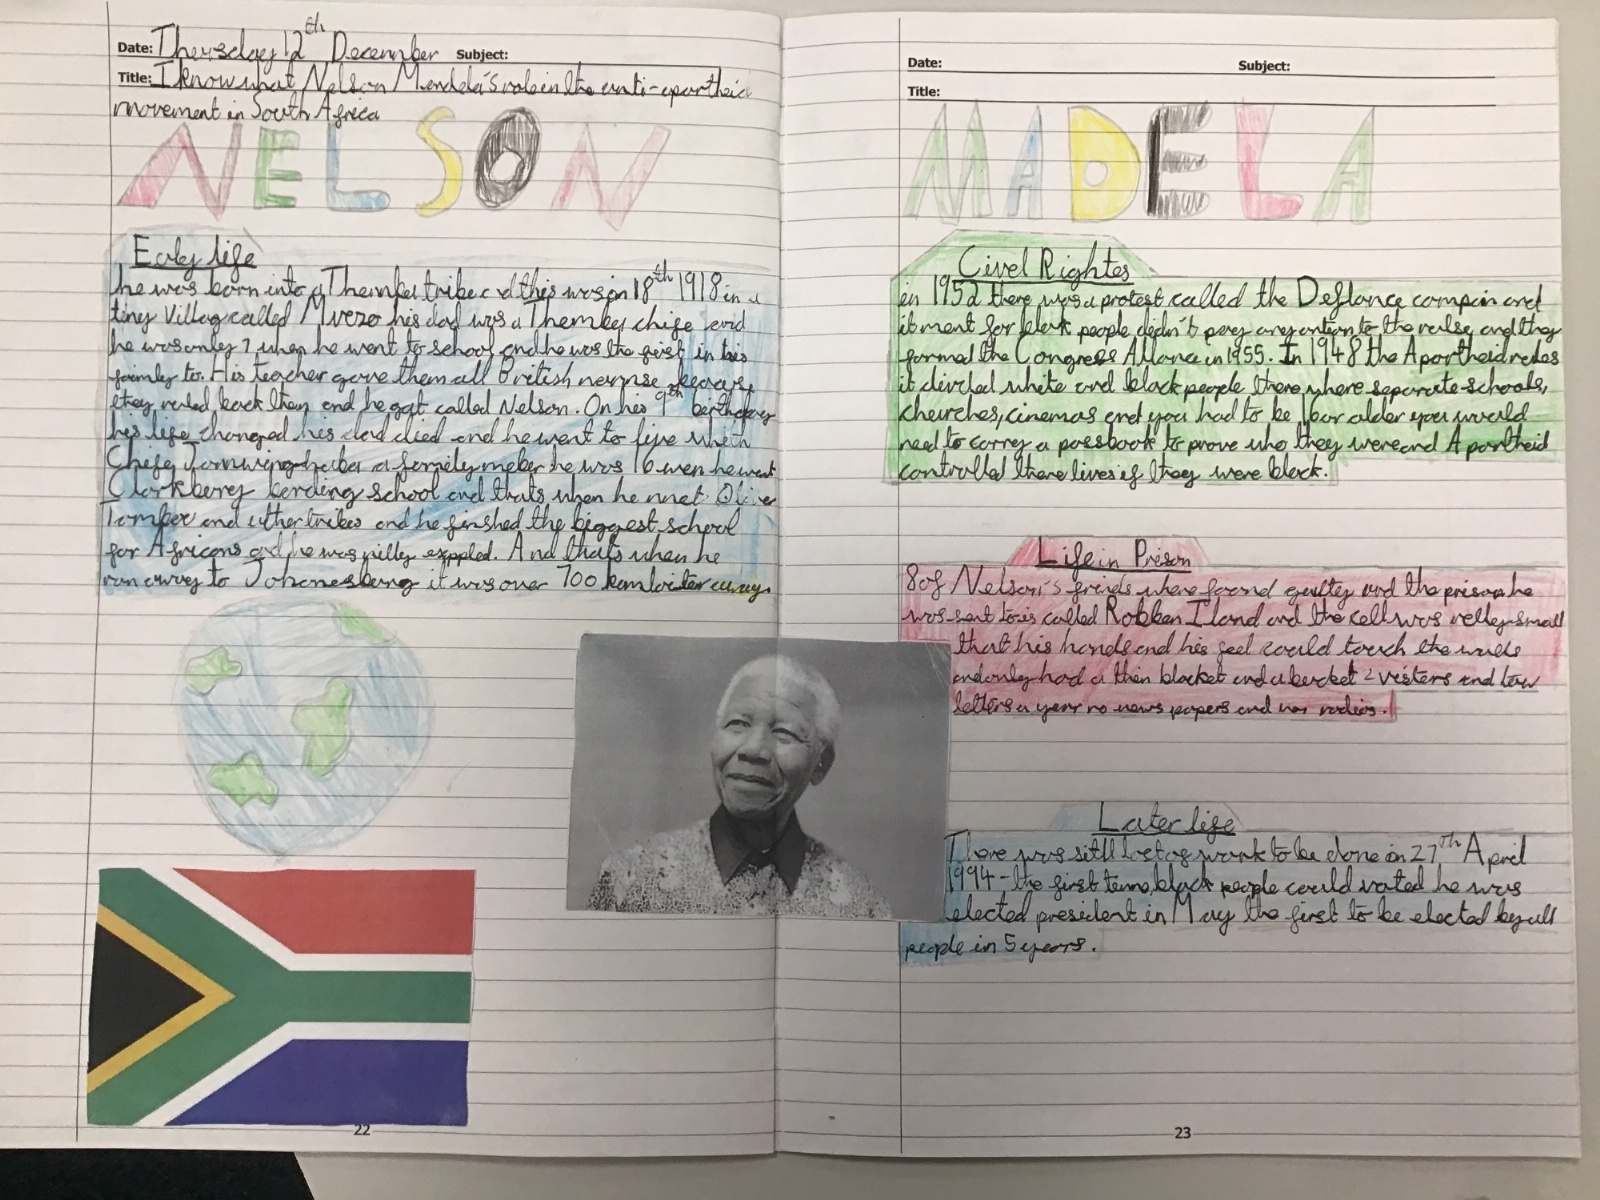 Date: Thursday 12th December Subject:
Title: I know what Nelson Mendela's role in the anti-apartheid
movement in South Africa
NELSON
Early life
he was born into a Themba tribe and this was on 18th 1918 in a
tiny Village called Mvezo his dad was a Themby chife and
he was only 7 when he went to school and he was the first in his
faimly to. His teacher gave them all British nempse because
they ruled back then and he got called Nelson. On his 9th birthday
his life changed his dad died and he went to live which
Chife a family meber he was 16 wen he went
Clarkberry bording school and thats when he met Oliver
Tamboe and uther tribes and he finshed the biggest school
for Africans and he was nilly exppled. And thats when he
ran away to Johanesberg it was over 700 away.
22
Date: Subject:
Title:
MADELA
Civel Rightes
en 1952 there was a protest called the Defiance campain and
it ment for black people didn't pay any antion to the rulse and they
formed the Congress Allance in 1955. In 1948 the Apartheid rules
it divided white and black people there where separate schools,
cheurches, cinemas and you had to be foar older you would
need to carry a passbook to prove who they were and Apartheid
controlled there lives if they were black.
Life in Prison
8 of Nelson's frinds where found guilty and the prison he
was sent to is called Robben Iland and the cell was relley small
that his hands and his feel could touch the walls
and only had a then blacket and a bucket 2 visters and tow
letters a year no news papers and nor radios.
Later life
There was sitll lot of work to be done on 27th April
1994 - the first teme black people could voted he was
elected president in May the first to be elected by all
people in 5 years.
23